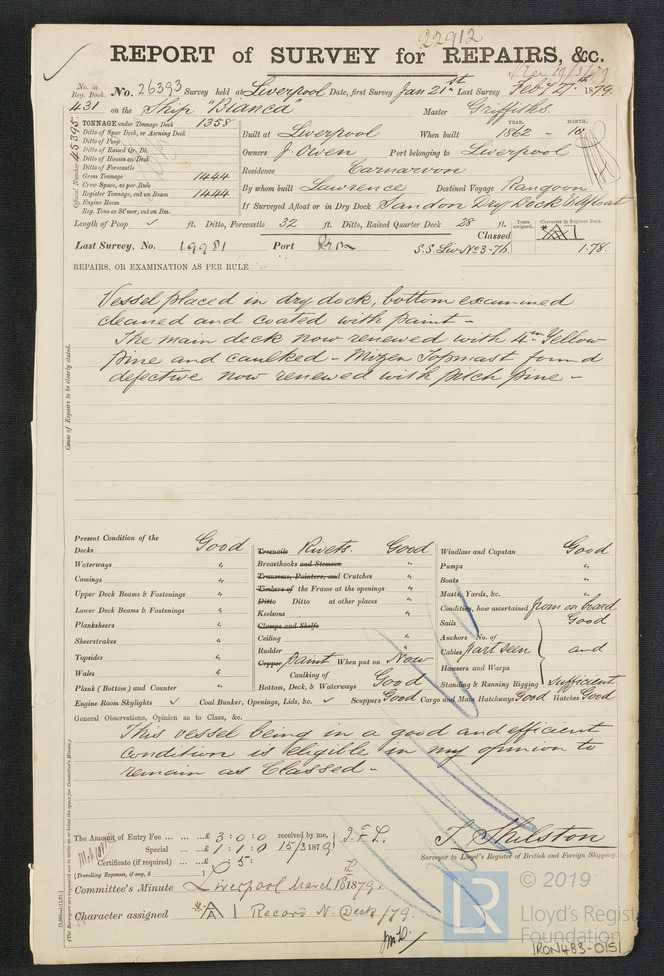 22912
REPORT of SURVEY for REPAIRS, &c.
No. in Reg. Book. No. 26393 Survey held at Liverpool Date, first Survey Jan 21st Last Survey Feb 27th 1879
431 on the Ship "Bianca" Master Griffiths
TONNAGE under Tonnage Deck 1358
Ditto of Spar Deck, or Awning Deck
Ditto of Poop
Ditto of Raised Qr. Dk.
Ditto of Houses on Deck
Ditto of Forecastle
Gross Tonnage 1444
Crew Space, as per Rule
Register Tonnage, cut on Beam 1444
Engine Room
Reg. Tons as St'mer, cut on Bm.
Official Number 45395
YEAR. MONTH.
Built at Liverpool When built 1862 - 10
Owners J. Owen Port belonging to Liverpool
Residence Carnarvon
By whom built Lawrence Destined Voyage Rangoon
If Surveyed Afloat or in Dry Dock Sandon Dry Dock & Afloat
Length of Poop ✓ ft. Ditto, Forecastle 32 ft. Ditto, Raised Quarter Deck 28 ft.
Years assigned. Character in Register Book.
Classed A1
Last Survey, No. 19981 Port S.S. Liv. No 3-76 1.78
REPAIRS, OR EXAMINATION AS PER RULE
Vessel placed in dry dock, bottom examined
cleaned and coated with paint -
The main deck now renewed with 4in Yellow
Pine and caulked - Mizen Topmast found
defective now renewed with pitch pine -
Cause of Repairs to be clearly stated.
Present Condition of the
Decks Good
Waterways "
Comings "
Upper Deck Beams & Fastenings "
Lower Deck Beams & Fastenings "
Planksheers "
Sheerstrakes "
Topsides "
Wales "
Plank (Bottom) and Counter "
Engine Room Skylights ✓ Coal Bunker, Openings, Lids, &c. ✓ Scuppers Good Cargo and Main Hatchways Good Hatches Good
Treenails Rivets. Good
Breasthooks and Stemson "
Transoms, Pointers, and Crutches "
Timbers of the Frame at the openings "
Ditto Ditto at other places "
Keelsons "
Clamps and Shelfs
Ceiling "
Rudder "
Copper paint When put on Now
Caulking of
Bottom, Deck, & Waterways Good
Windlass and Capstan Good
Pumps "
Boats "
Masts, Yards, &c. "
Condition, how ascertained from on board
Sails Good
Anchors No. of
Cables part seen and
Hawsers and Warps
Standing & Running Rigging sufficient
General Observations, Opinion as to Class, &c.
This vessel being in a good and efficient
condition is eligible in my opinion to
remain as Classed -
The Amount of Entry Fee ... £ 3:0:0 received by me,
Special ... £ 1:1:0 15/3/1879 J.F.L.
Certificate (if required) ... £ :5:
(Travelling Expenses, if any, £ )
T. Shilston
Surveyor to Lloyd's Register of British and Foreign Shipping.
Committee's Minute Liverpool March 18 1879.
Character assigned A 1 Record N. Decks /79.
© 2019
LR
Lloyd's Register
Foundation
RON483-0151